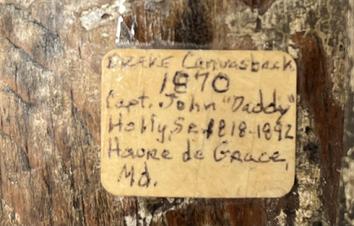 DRAKE Canvasback
1870
Capt. John "Daddy"
Holly, Sr. 1818-1892
Havre de Grace,
Md.